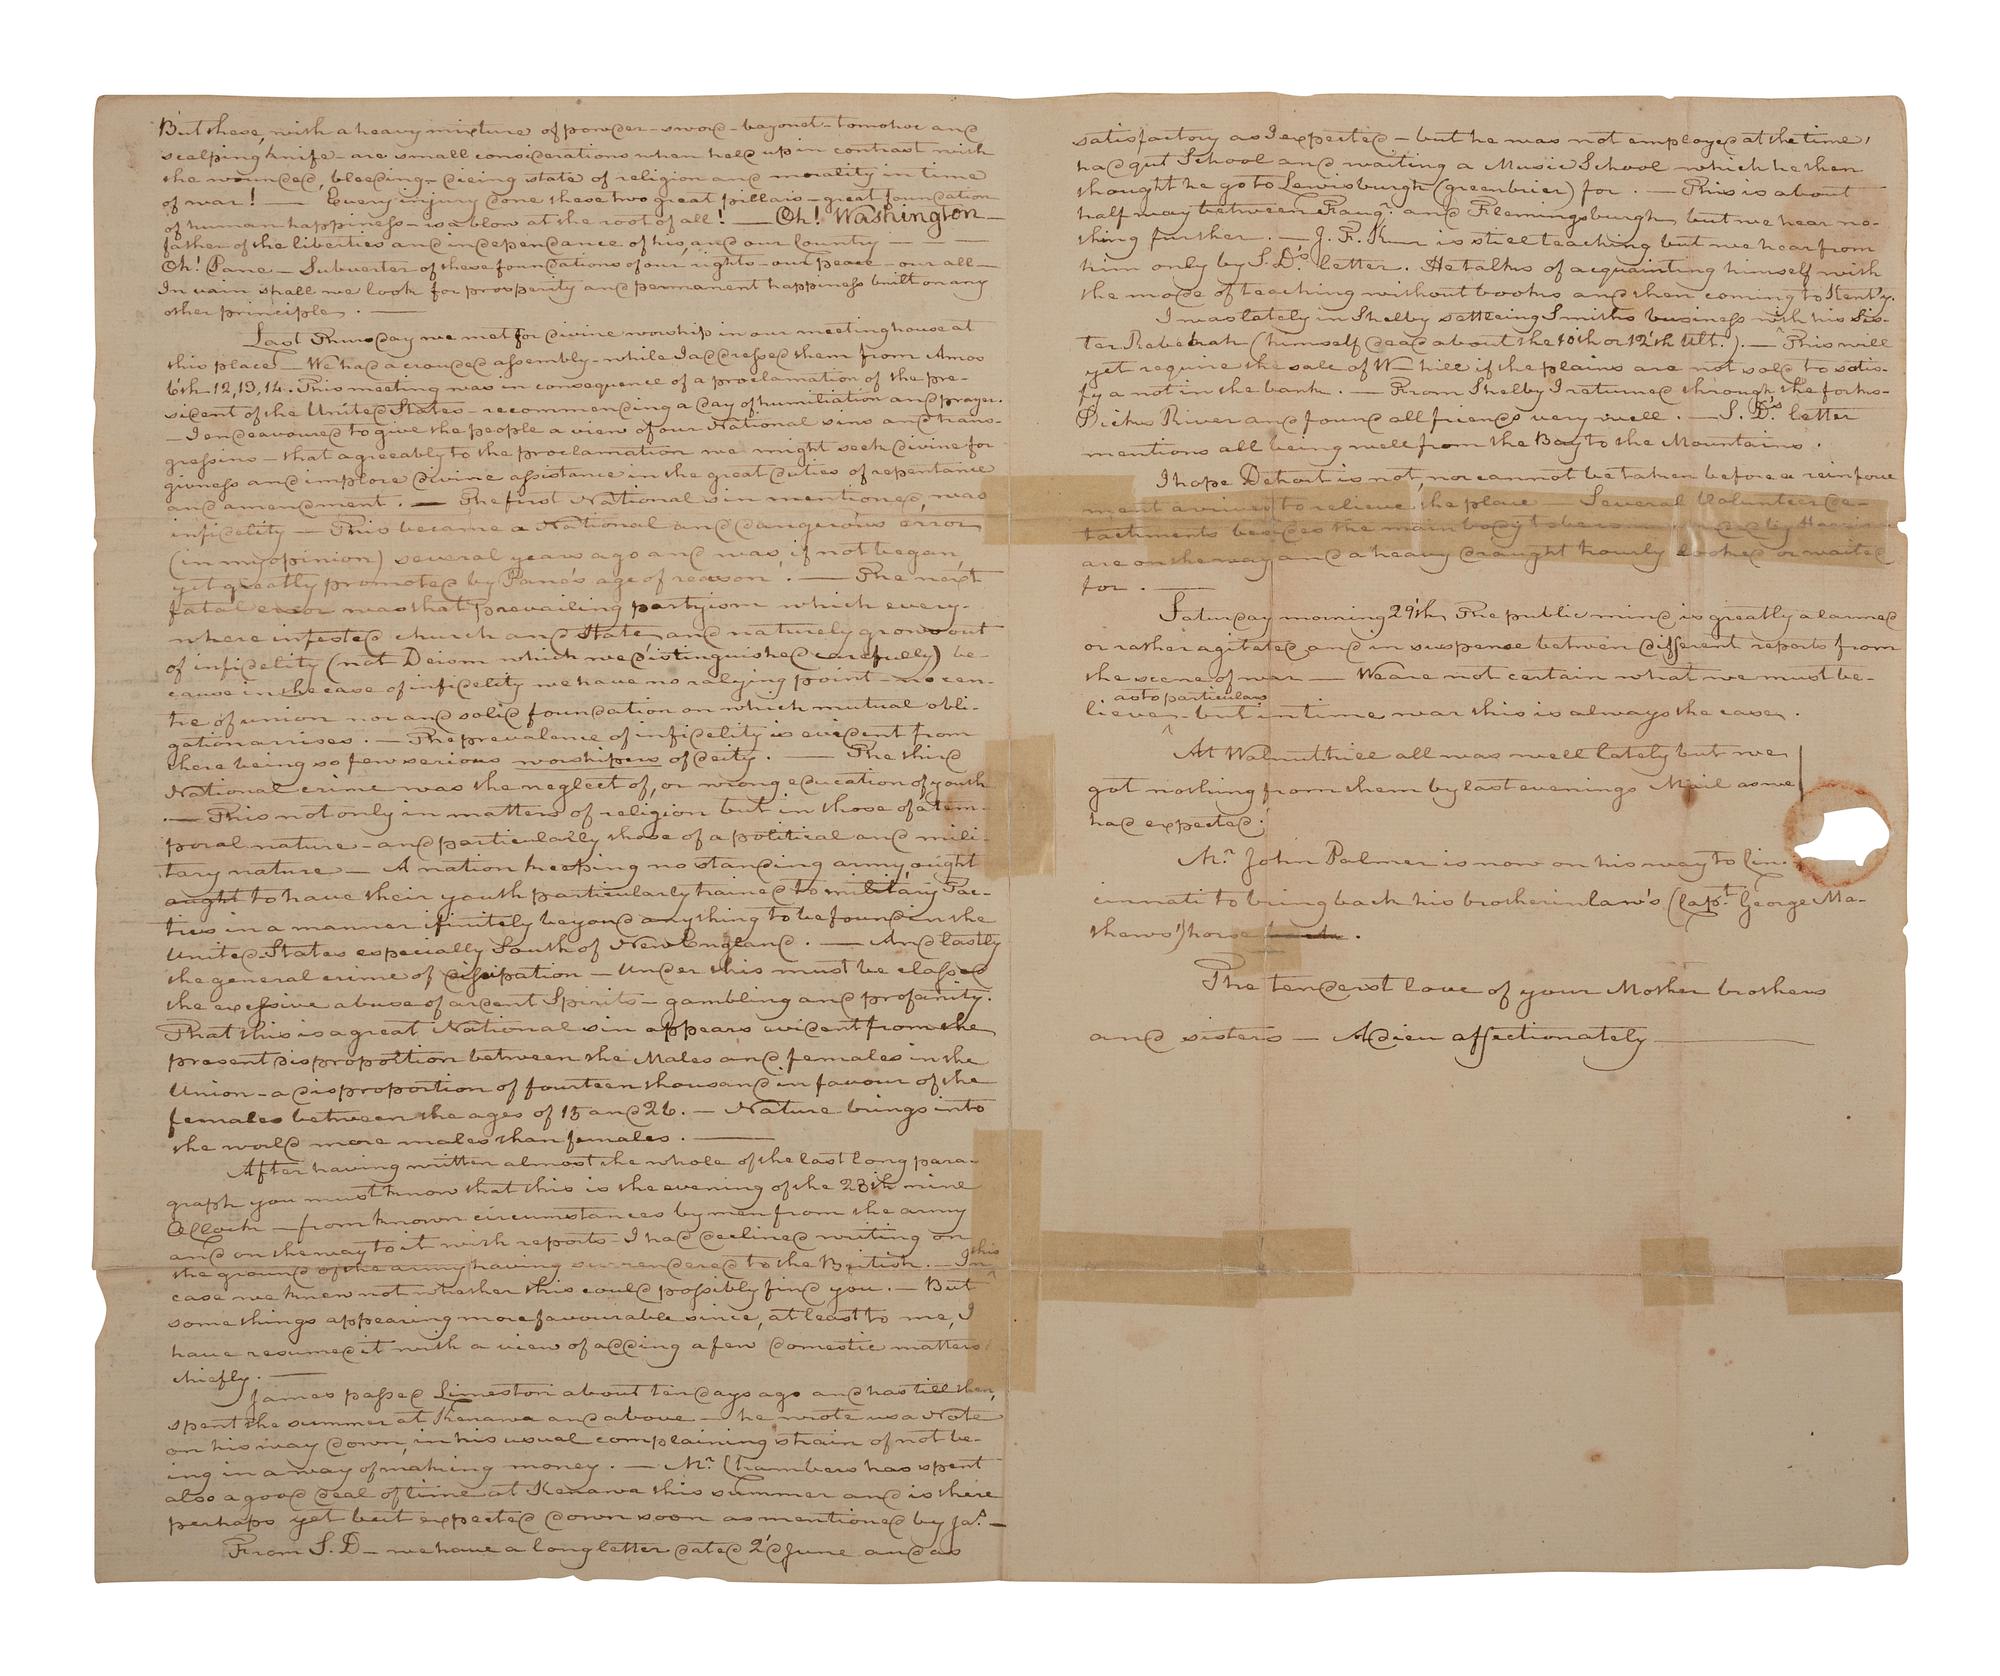 But these, with a heavy mixture of powder - sword - bayonet - tomohoc and
scelping knife - are small considerations when held up in contrast with
the wounded, bleeding - dieing state of religion and morality in time
of war! — Every injury done these two great pillars - great foundation
of human happiness - is a blow at the root of all! — Oh! Washington —
father of the liberties and independance of his, and our Country — —
Oh! Pane - Subverter of these foundations of our rights - our peace - our all -
In vain shall we look for prosperity and permanent happiness built on any
other principle. —
Last Thursday we met for divine worship in our meetinghouse at
this place - We had a crouded assembly - while I addressed them from Amos
6th 12, 13, 14. This meeting was in consequence of a proclamation of the pre-
sident of the United States - recommending a day of humiliation and prayer.
- I endeavoured to give the people a view of our National sins and trans-
gressins - that agreeably to the proclamation we might seek divine for
givness and implore divine assistance in the great duties of repentance
and amendment. — The first National sin mentioned, was
infidelity — This became a National and dangerous error
(in my opinion) several years ago and was, if not began,
yet greatly promoted by Pane's age of reason. — The next
fatal error was that prevailing partyism which every-
where infested church and State, and naturely grows out
of infidelity (not Deism which we distinguished carefully) be-
cause in the case of infidelity we have no ralying point - no cen-
tre of union nor and solid foundation on which mutual obli-
gation arrises. — The prevalence of infidelity is evident from
there being so few serious worshipers of deity. — The third
National crime was the neglect of, or wrong education of youth
. — This not only in matters of religion but in those of a tem-
poral nature - and particularly those of a political and mili-
tary nature — A nation keeping no standing army, ought
ought to have their youth particularly trained to military Tac-
tics in a manner ifinitely beyond anything to be found in the
United States especially South of New England. — And lastly
the general crime of dissipation - Under this must be classed
the excessive abuse of ardent Spirits - gambling and profanity.
That this is a great National sin appears evident from the
present disproportion between the Males and females in the
Union - a disproportion of fourteen thousand in favour of the
females between the ages of 15 and 26. - Nature brings into
the world more males than females. —
After having written almost the whole of the last long para-
graph you must know that this is the evening of the 28th nine
OClock - from known circumstances by men from the army
and on the way to it with reports - I had declined writing on
the ground of the army having surrendered to the British. - In this
case we knew not whether this could possibly find you. - But
some things appearing more favourable since, at least to me, I
have resumed it with a view of adding a few domestic matters
chiefly. —
James passed Limeston about ten days ago and has till then,
spent the summer at Kenawa and above - he wrote us a Note
on his way down, in his usual complaining strain of not be-
ing in a way of making money. - Mr. Chambers has spent
also a good deal of time at Kenawa this summer and is there
perhaps yet but expected down soon as mentioned by Jas. -
From S. D - we have a long letter dated 2d June and as
satisfactory as I expected - but he was not employed at the time,
had qut School and waiting a Music School which he then
thought he go to Lewisburgh (greenbrier) for. - This is about
half way between Fauqr. and Flemingsburgh, but we hear no-
thing further. - J. F. K is still teaching but we hear from
him only by S. D's. letter. He talks of acquainting himself with
the mode of teaching without books and then coming to Kent'y.
I was lately in Shelby settleing Smiths business with his Sis-
ter Rebekah (himself dead about the 10th or 12th Ult.). - This will
yet require the sale of W hill if the plains are not sold to satis-
fy a not in the bank. - From Shelby I returned through the forks -
Dicks River and found all friends very well. - S. D's. letter
mentions all being well from the Bay to the Mountains.
I hope Detroit is not, nor cannot be taken before a reinforce
ment arrives to relieve the place - Several Volunteer de-
tachments besides the main body by Harrison
are on the way and a heavy draught hourly looked or waited
for. —
Saturday morning 29th, The public mind is greatly alarmed
or rather agitated, and in suspense between different reports from
the scene of war - We are not certain what we must be-
as to particulars
lieve - but in time war this is always the case.
At Walnuthill all was well lately but we
got nothing from them by last evenings Mail as we
had expected.
Mr. John Palmer is now on his way to Cin-
cinnati to bring back his brotherinlaw's (Capt. George Ma-
thews') horse.
The tenderest love of your Mother brothers
and sisters - Adieu affectionately —